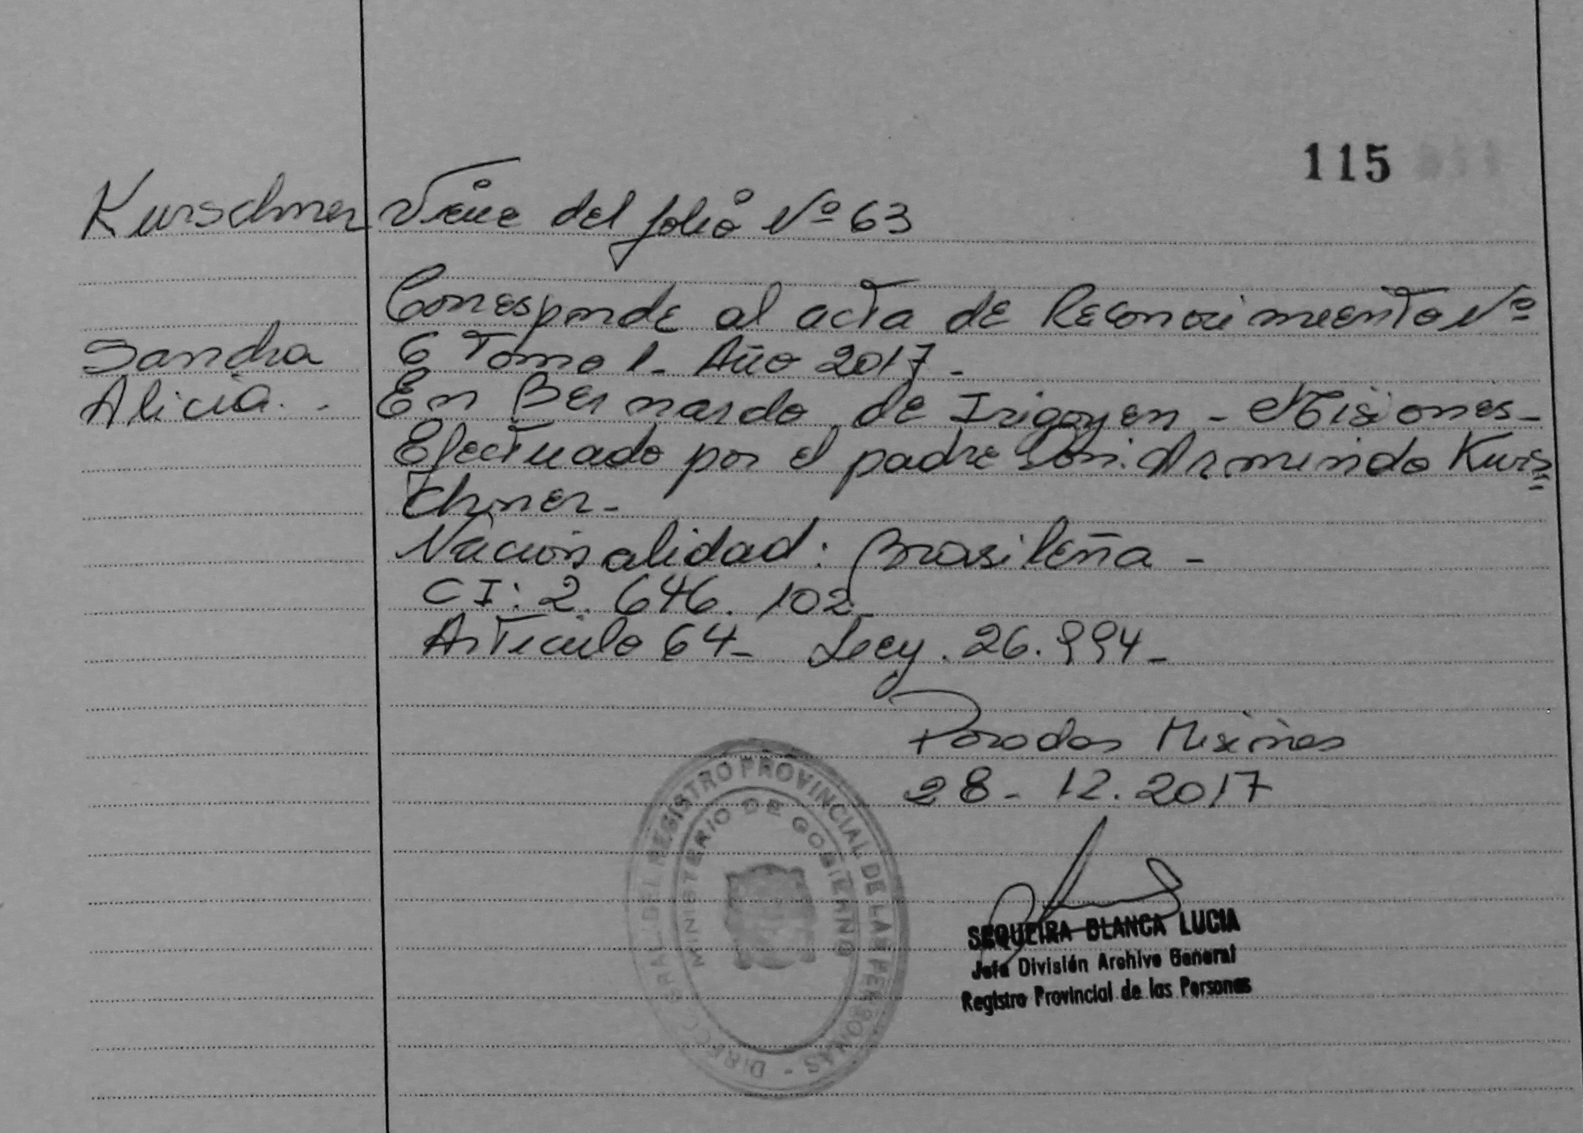 115
Kurschner Viene del folio Nº 63
Corresponde al acta de Reconocimiento Nº
Sandra 6 Tomo 1- Año 2017-
Alicia.- En Bernardo de Irigoyen - Misiones-
Efectuado por el padre Don: Armindo Kurs=
chner-
Nacionalidad: Brasileña-
CI: 2.646.102-
Articulo 64- Ley. 26.994-
Posadas Misiones
28-12.2017
DIREC. GRAL DEL REGISTRO PROVINCIAL DE LAS PERSONAS -
MINISTERIO DE GOBIERNO
SEQUEIRA BLANCA LUCIA
Jefa División Archivo General
Registro Provincial de las Personas